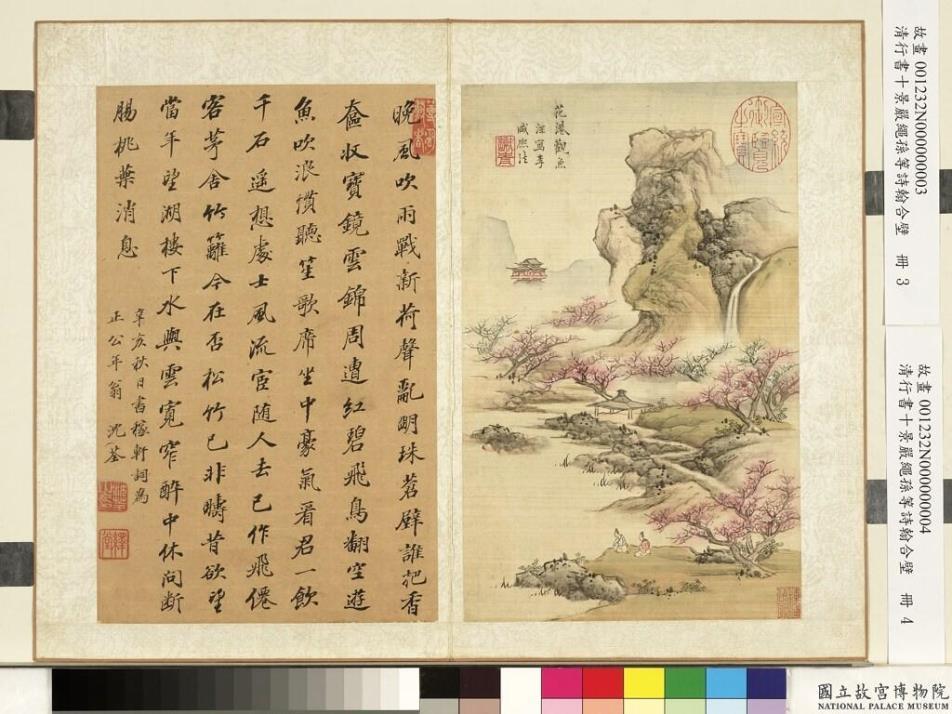 故畫 001232N000000003
清行書十景嚴繩孫等詩翰合璧 冊 3
故畫 001232N000000004
清行書十景嚴繩孫等詩翰合璧 冊 4
花港觀魚
寫李
咸熙法
晚風吹雨戰新荷聲亂明珠蒼壁誰把香
奩收寶鏡雲錦周遭紅碧飛鳥翻空遊
魚吹浪慣聽笙歌席坐中豪氣看君一飲
千石遙想處士風流宦随人去已作飛僊
客茅舍竹籬今在否松竹已非疇昔欲望
當年望湖樓下水與雲寬窄醉中休問斷
腸桃葉消息
辛亥秋日書稼軒詞為
正公年翁 沈荃
國立故宮博物院
NATIONAL PALACE MUSEUM